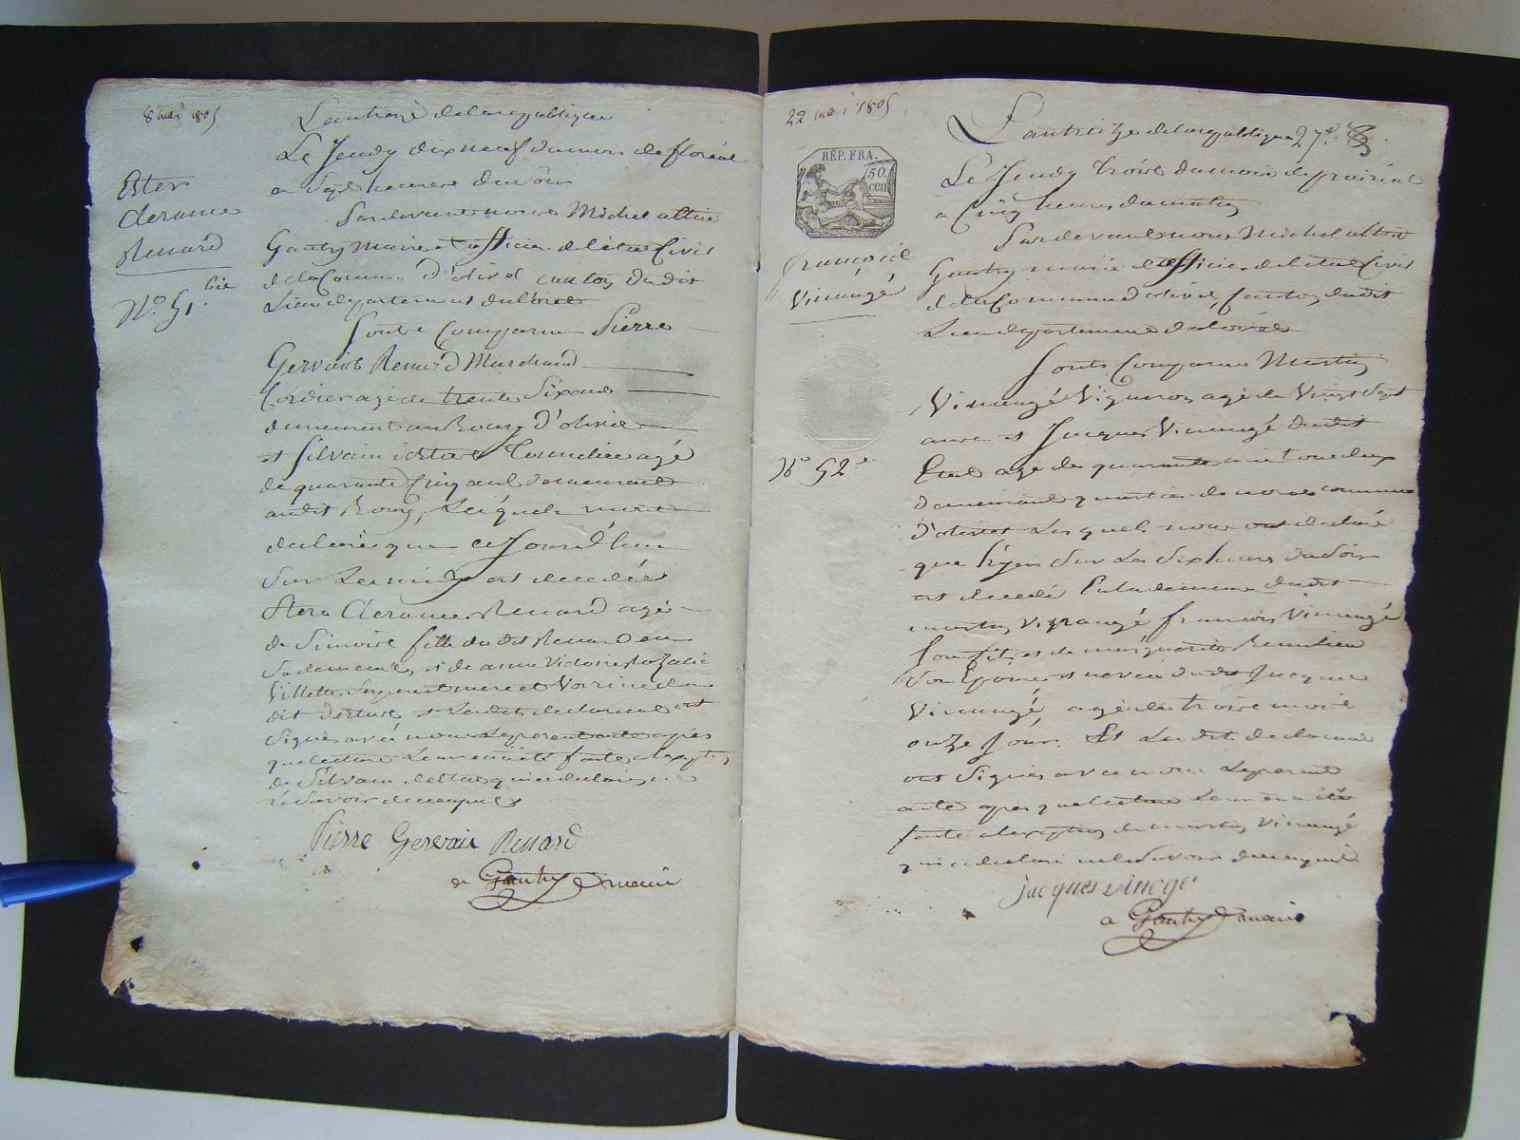 8 mai 1805
L'an treize de la republique
Le Jeudy dixneuf du mois de floréal
a Sept heures du soir
Ester
Clerance
Renard
N.° 51. bis
Pardevant nous Michel altin
Gautry Maire et officier de l'état Civil
de la Commune d'olivet canton du dit
Lieu departement du Loiret
Sont Comparu Pierre
Gervais Renard Marchand
Cordier agé de trente Six ans
demeurant au Bourg d'olivet
et Silvain agé
de quarante Cinq ans demeurant
au dit Bourg, Lesquels nous
declaré que ce Jourd'hui
Sur Le midy est decedée
Clerance Renard agé
de Six mois fille du dit Renard
Sa demeure, et de anne Victoire Rozalie
Villette
et Les dits declarant ont
Signés avec nous Le present acte apres
que lecture Leur en a été faite, a l'exception
de Silvain qui a declaré
ne Savoir de ce enquis
Pierre Gervais Renard
Gautry maire
22 mai 1805
L'an treize de la republique 27.e
REP. FRA.
50
cen
Le Jeudy trois du mois de prairial
a Cinq heures du matin
françois
Vinaugé
N° 52
Pardevant nous Michel altin
Gautry maire et officier de l'état Civil
de la Commune d'olivet, Canton du dit
Lieu departement du Loiret
Sont Comparu Martin
Vinaugé Vigneron agé de Vingt Sept
ans et Jacques Vinaugé du dit
Etat agé de quarante
demeurant quartier de notre commune
d'olivet Lesquels nous ont declaré
que hyer Sur Les Six heures du Soir
est decedé En la demeure du dit
martin Vinaugé françois Vinaugé
Son fils, et de marguerite
Son Epouse et neveu du dit Jacques
Vinaugé, agé de trois mois
onze Jour. Et Les dits declarant
ont Signés avec nous Le present
acte apres que lecture Leur en a été
faite a l'exception de martin Vinaugé
qui a declaré ne le Savoir de ce enquis
Jacques Vinogé
Gautry maire